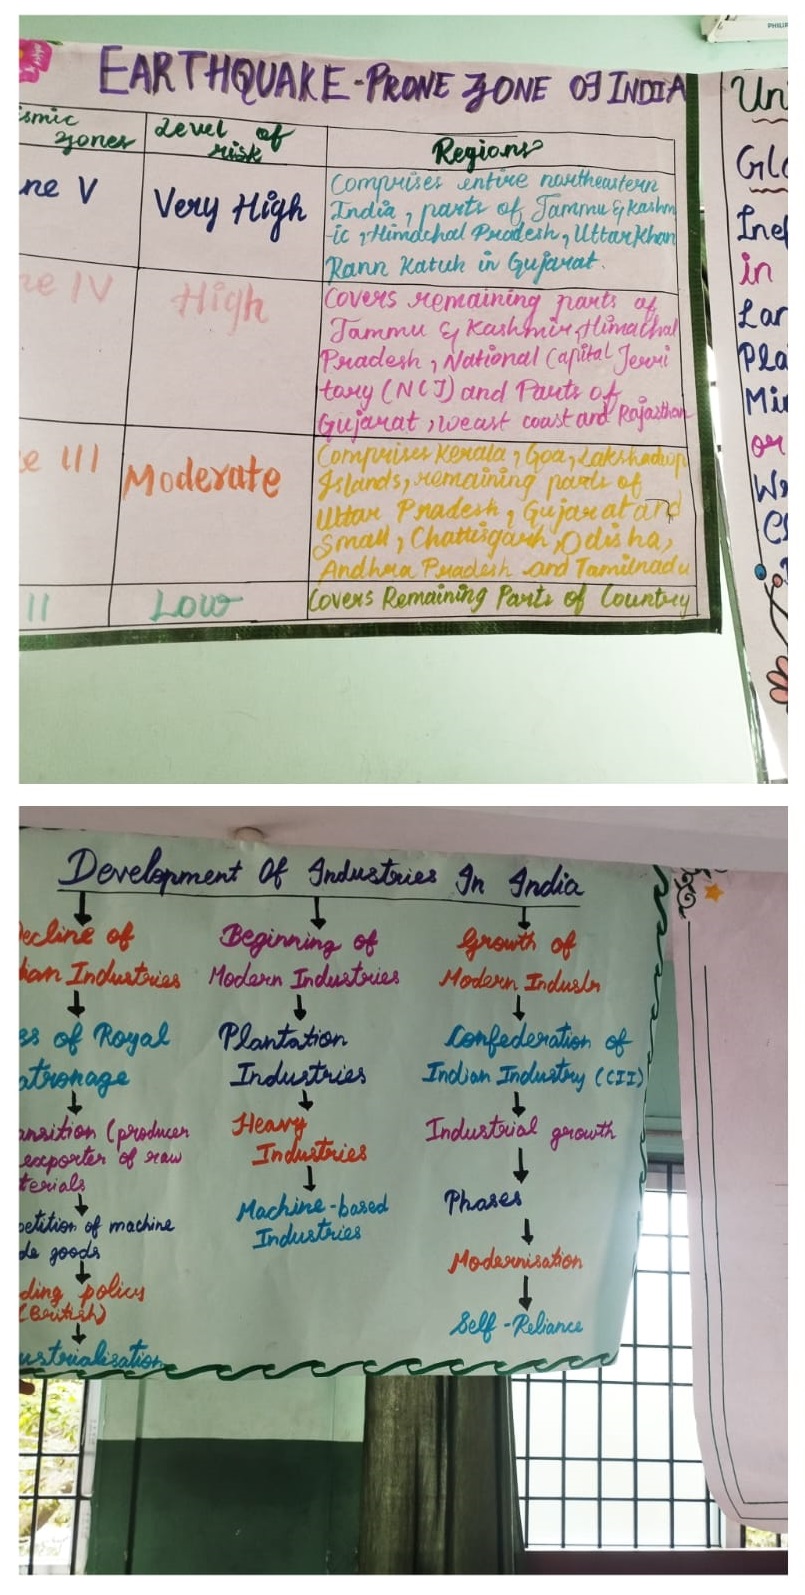 EARTHQUAKE-PRONE ZONE OF INDIA
ismic zones
Level of risk
Regions
ne V
Very High
Comprises entire northeastern
India, parts of Jammu & Kashm
-ir, Himachal Pradesh, Uttarkhan
Rann Katuh in Gujarat.
ne IV
High
Covers remaining parts of
Jammu & Kashmir, Himachal
Pradesh, National Capital Terri
tory (NCT) and Parts of
Gujarat, weast coast and Rajasthan
e III
Moderate
Comprises Kerala, Goa, Lakshadwop
Islands, remaining parts of
Uttar Pradesh, Gujarat and
Small, Chattisgarh, Odisha,
Andhra Pradesh and Tamilnadu
II
Low
Covers Remaining Parts of Country
Un
Glo
in
Lar
Pla
Mi
or
PHILIP
Development Of Industries In India
ecline of
ian Industries
ss of Royal
atronage
ansition (producer
exporter of raw
terials
petition of machine
de goods
ding policy
(British)
ustrialisation
Beginning of
Modern Industries
Plantation
Industries
Heavy
Industries
Machine-based
Industries
Growth of
Modern Industn
Confederation of
Indian Industry (CII)
Industrial growth
Phases
Modernisation
Self-Reliance